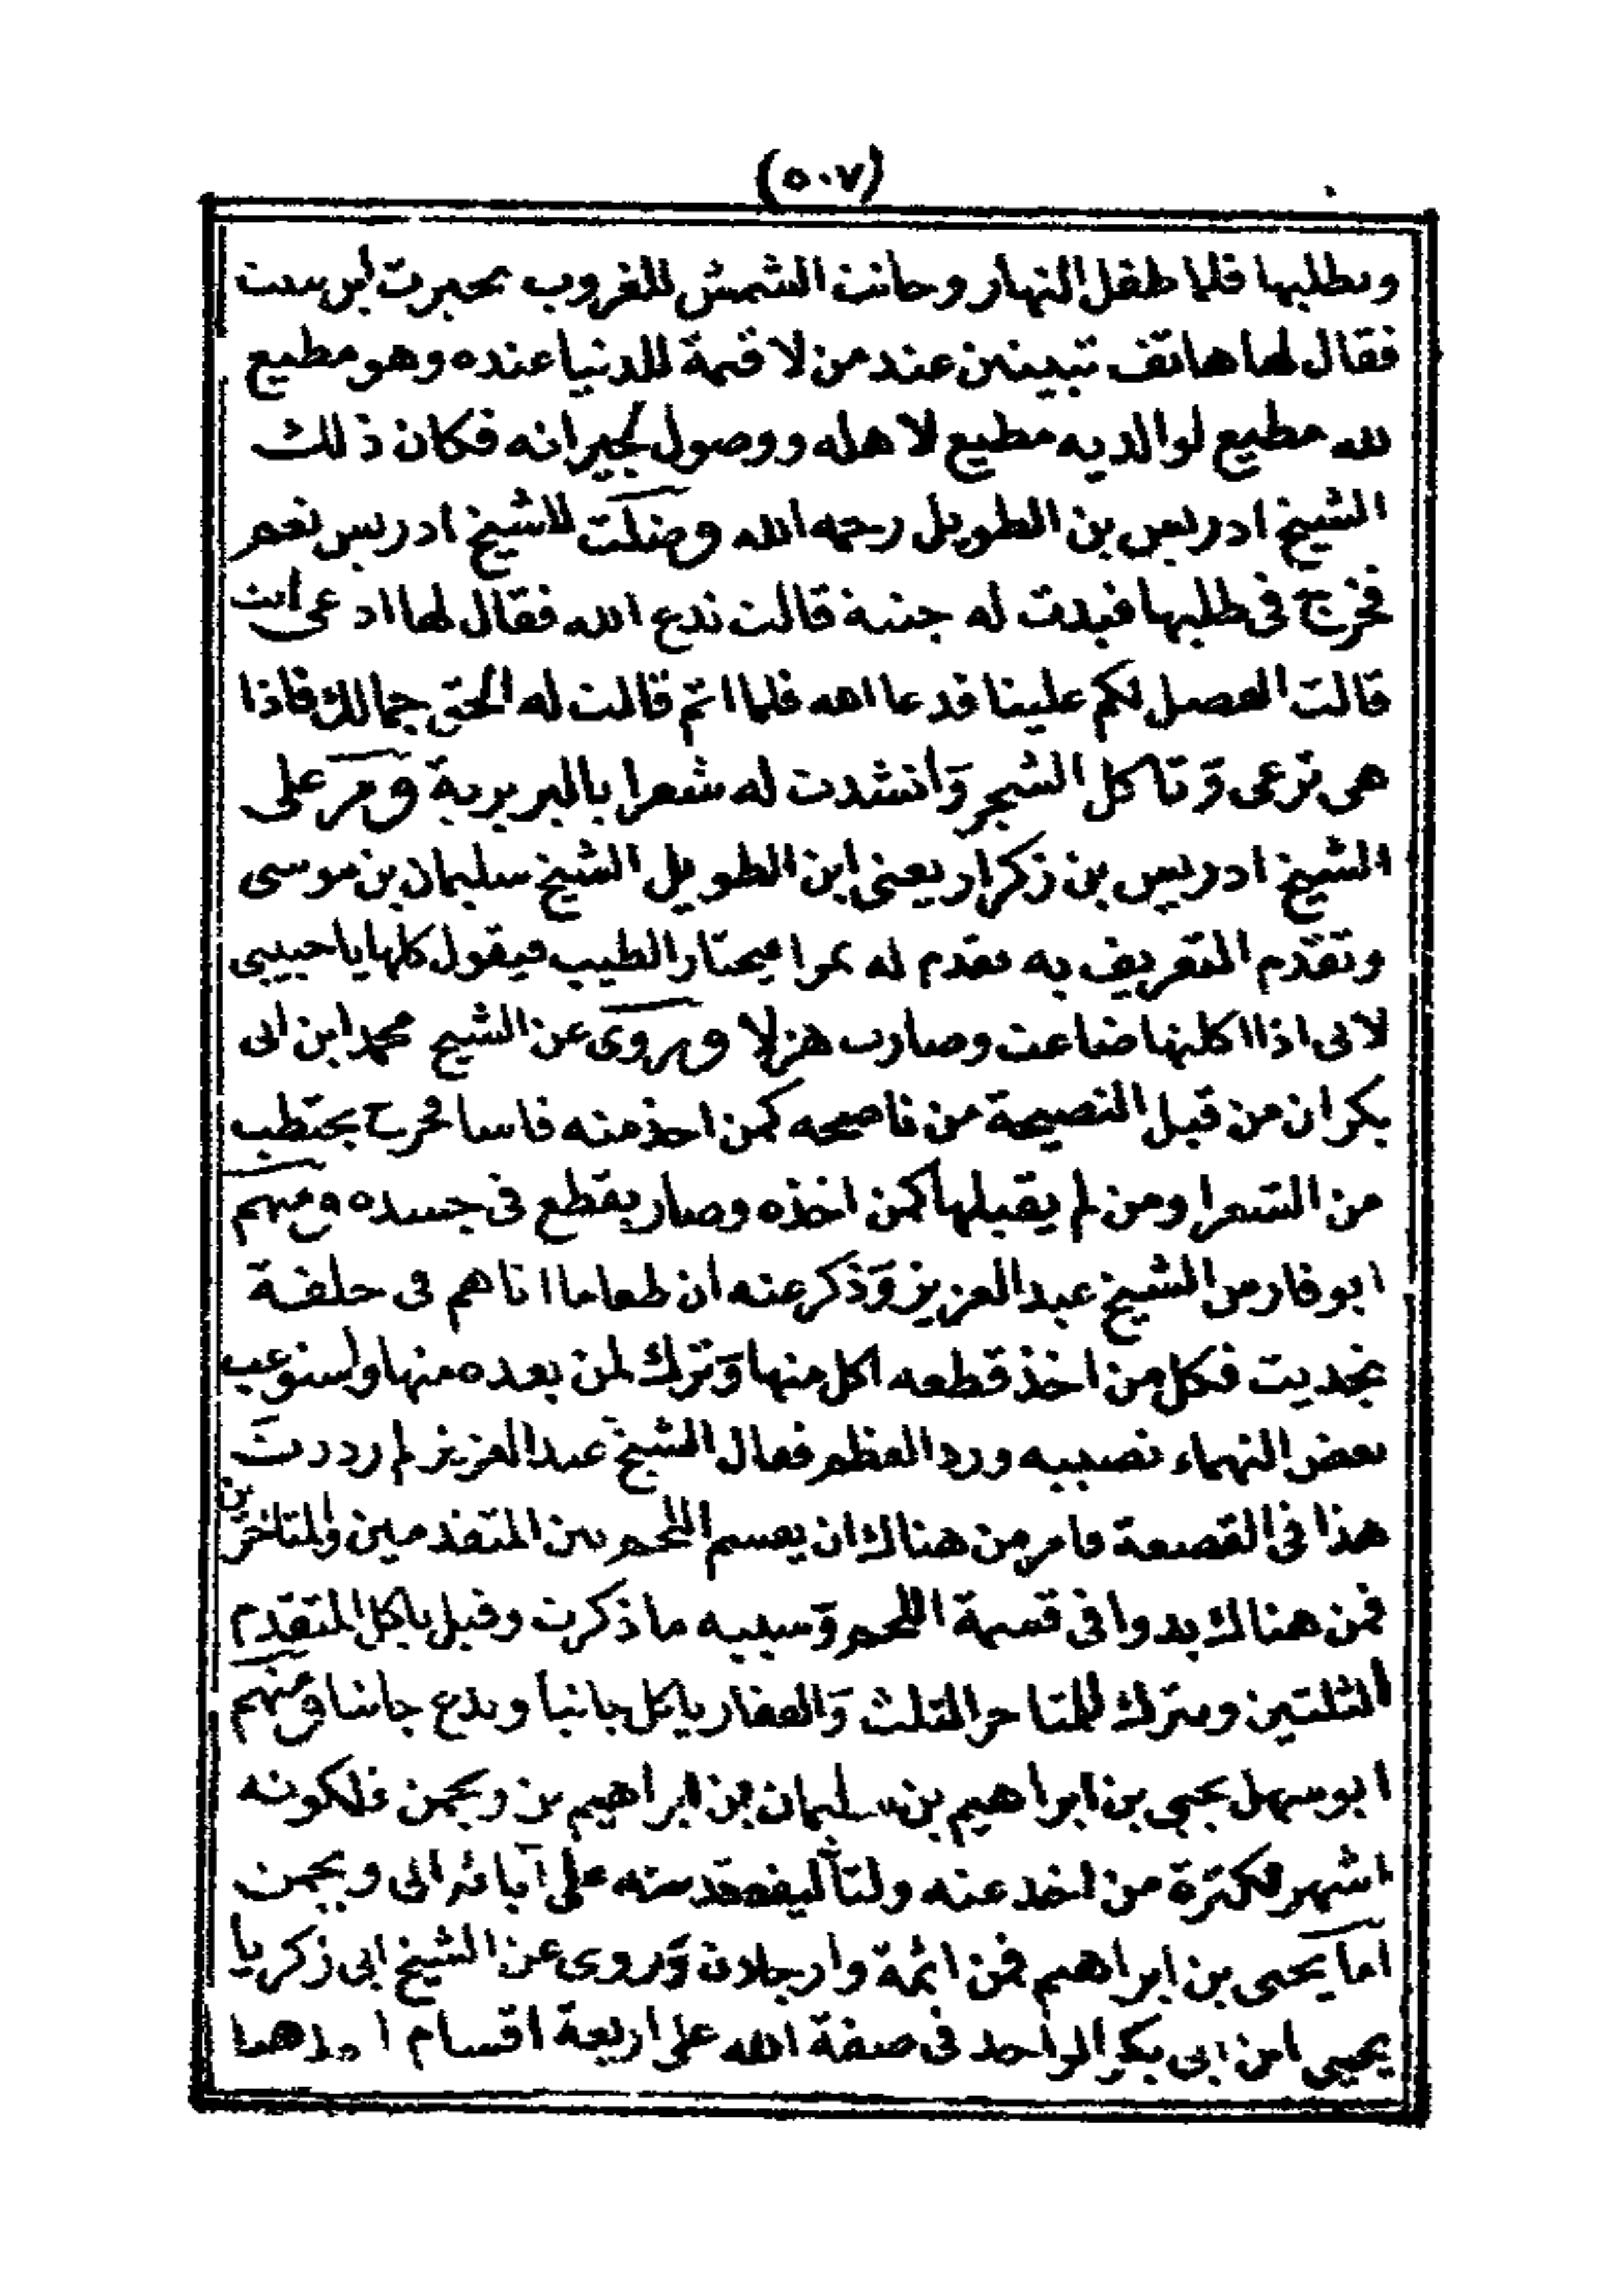 (٥٠٧)
وتطلبها فلما طفل النهار وحانت الشمش للغروب تحيرت اين تبيت
فقال لها هاتف تبيتين عند من لا قيمة للدنيا عنده وهو مطيع
لله مطيع لوالديه مطيع لاهله ووصول لجيرانه فكان ذلك
الشيخ ادريس بن الطويل رحمه الله وضلت للشيخ ادريس نعم
فخرج فى طلبها فبدت له جنية قالت ندع الله فقال لها ادعى انت
قالت الفضل لكم علينا فدعا الله فلما اتم قالت له الحق جمالك فاذا
هى ترعى وتاكل الشجر وانشدت له شعرا بالبربرية ومر على
الشيخ ادريس بن زكرار يعنى ابن الطويل الشيخ سليمان بن موسى
وتقدم التعريف به فقدم له تمرا فيختار الطيب فيقول كلها يا حبيبى
لانى اذا اكلتها ضاعت وصارت هزلا وروى عن الشيخ محمد ابن ابى
بكر ان من قبل النصيحة من ناصحه كمن اخذ منه فاسا فخرج يحتطب
من الشعرا ومن لم يقبلها كمن اخذه وصار يقطع فى جسده ومنهم
ابو فارس الشيخ عبد العزيز وذكر عنه ان طعاما اتاهم فى حلقة
بحديث فكل من اخذ قطعه اكل منها وترك لمن بعده منها واستوعب
بعض النهماء نصيبه ورد العظم فقال الشيخ عبد العزيز لم رددت
هذا فى القصعة فامر من هناك ان يقسم اللحم بين المتقدمين والمتاخرين
فمن هناك بدوا فى قسمة اللحم وسببه ما ذكرت وقيل ياكل المتقدم
الثلثين ويترك للمتاخر الثلث والفقار ياكل جانبا ويدع جانبا ومنهم
ابو سهل يحيى بن ابراهيم بن سليمان بن ابراهيم بن ويجمن فلكونه
اشهر لكثرة من اخذ عنه ولتآليفه قدمته على آبائه الى ويجمن
اما يحيى بن ابراهيم فمن ائمة وارجلان وروى عن الشيخ ابى زكريا
يحيى ابن ابى بكر الواحد فى صفة الله على اربعة اقسام احدها